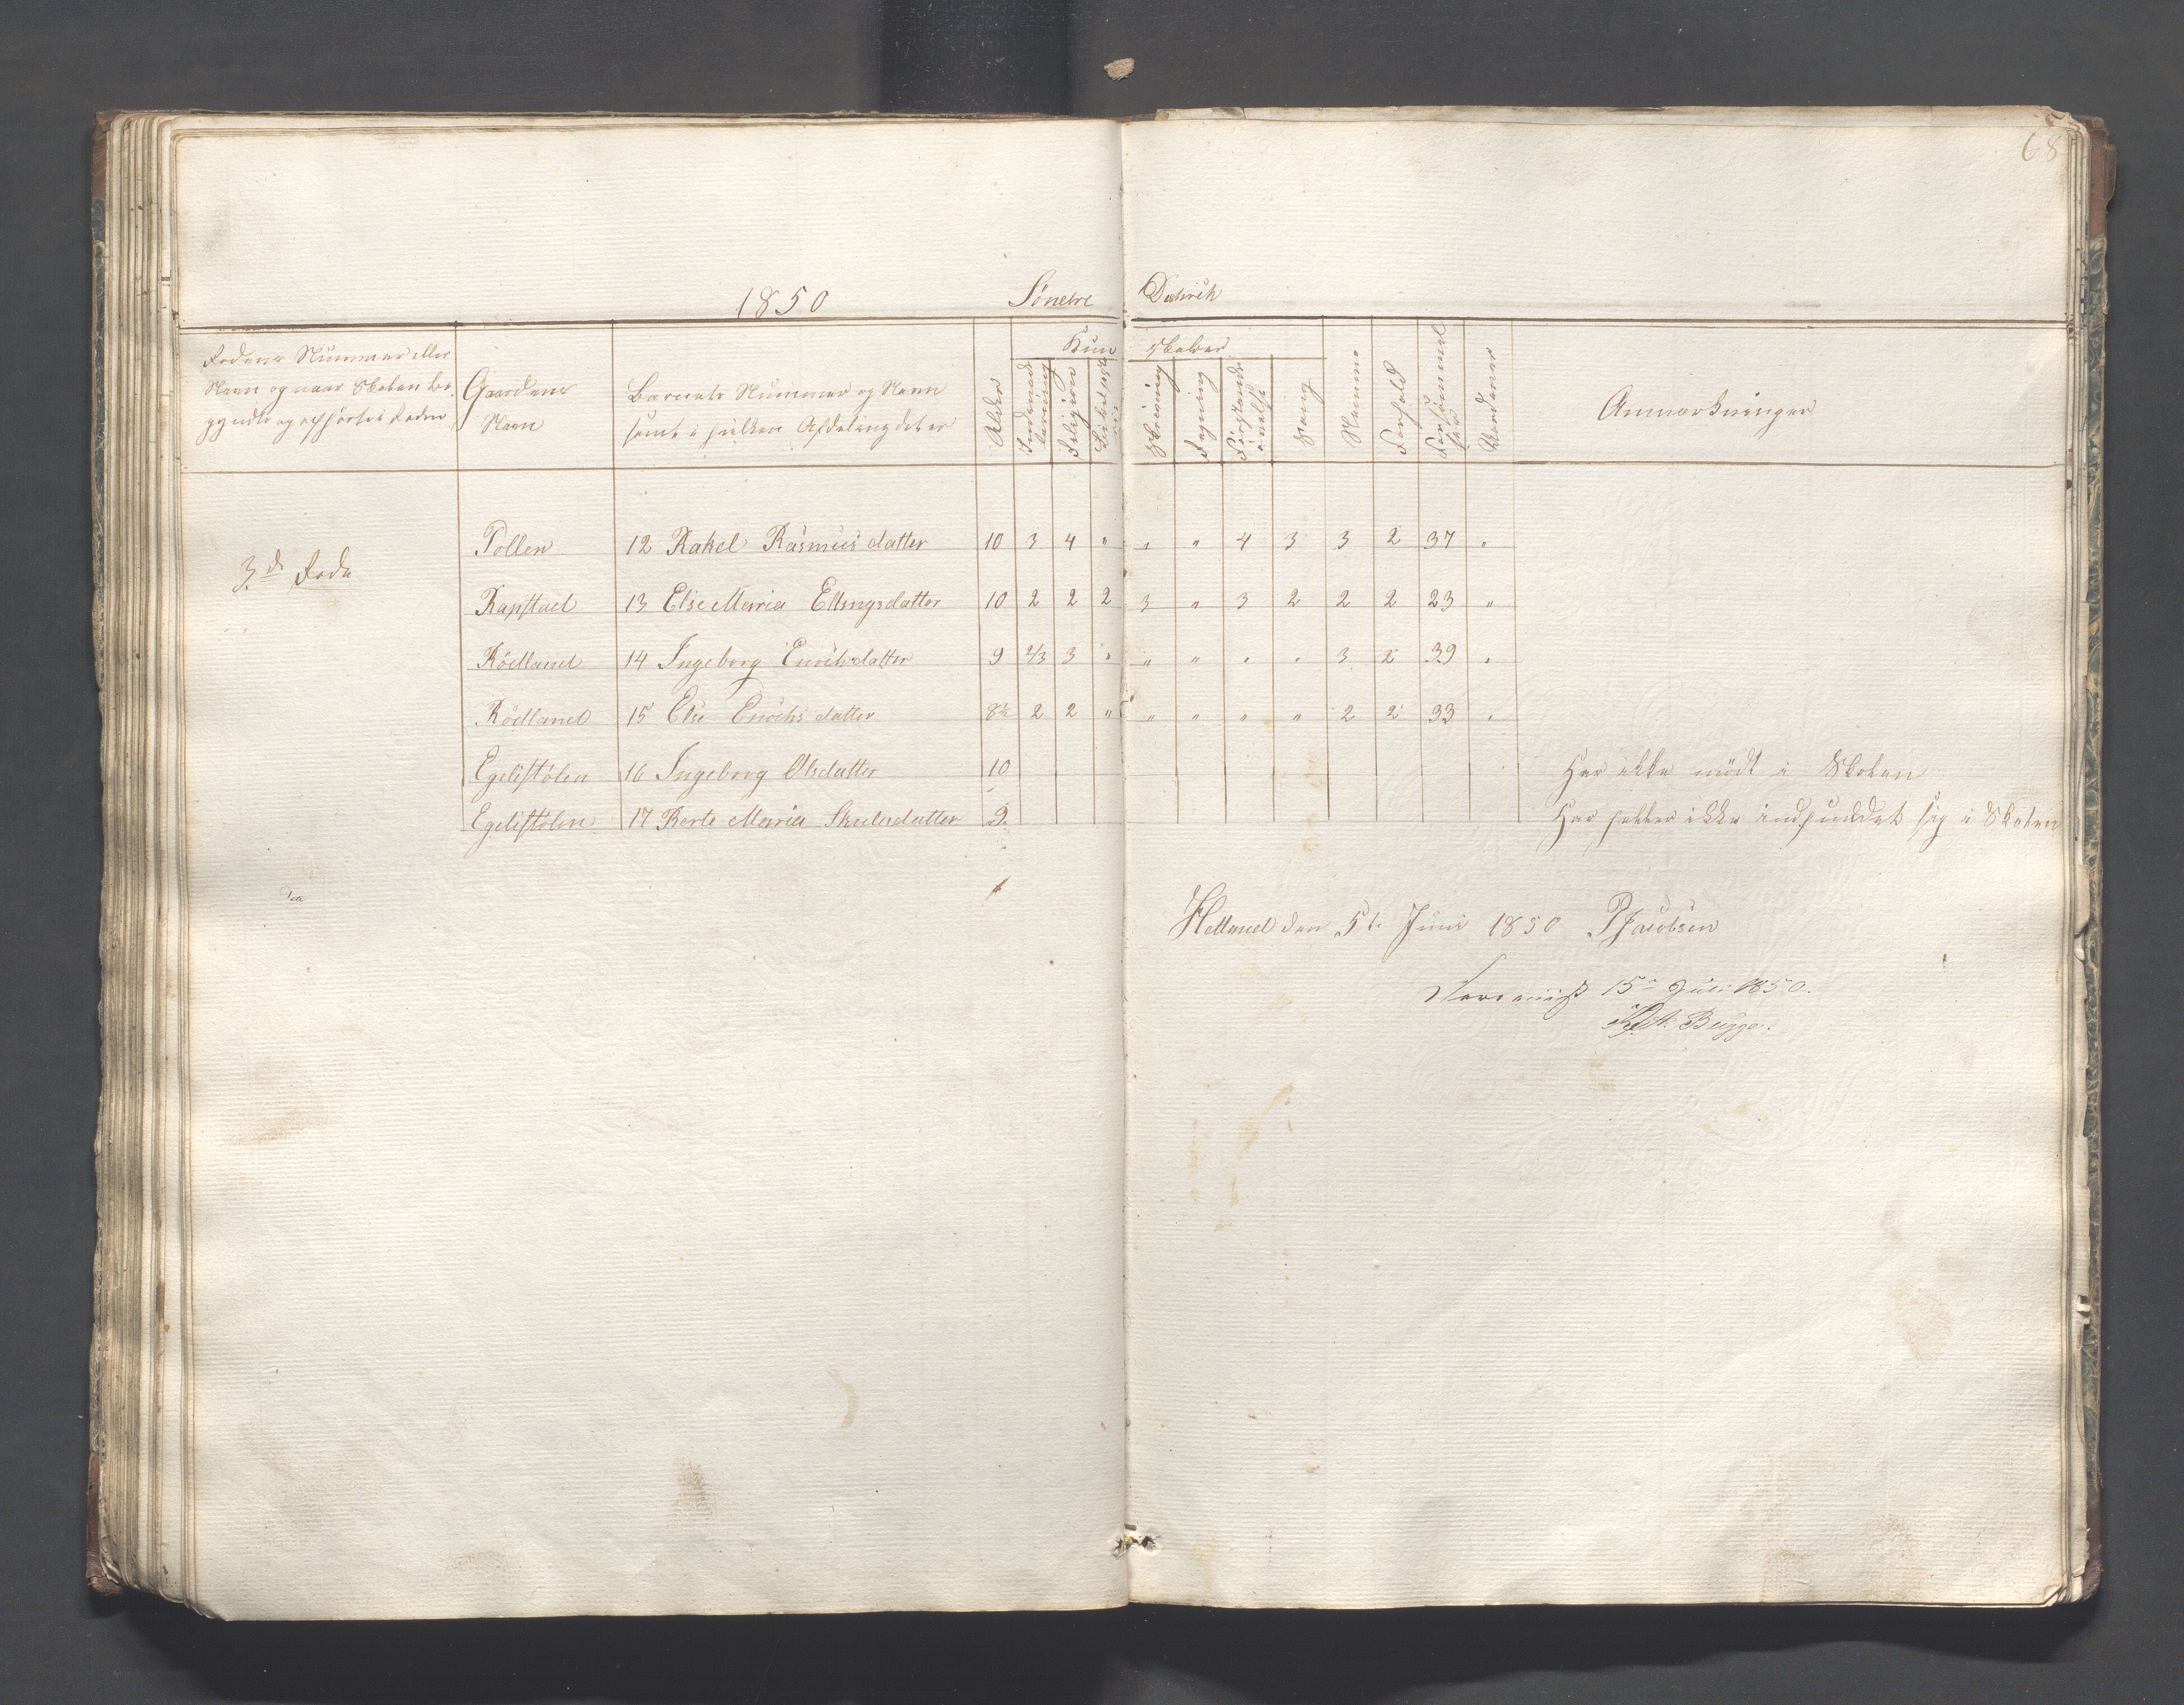 68
1850 Söndre Distrikt
Rodens Nummer eller
Navn og naar Skolen be
gyndte og ophörte i Roden
Gaardens
Navn
Barnets Nummer og Navn
samt i hvilken Afdeling det er
Alder
Kun skaber
Indenads
læsning
Religion
Bibelhisto
rie
Skrivning
Regning
Forstands
övelse
Sang
Nemme
Forhold
Forsömmel
ser
Anmærkninger
3d Rode
Pollen 12 Rakel Rasmusdatter 10 3 4 " " " 4 3 3 2 37 "
Rapstad 13 Else Maria Ellingsdatter 10 2 2 2 3 " 3 2 2 2 23 "
Rödland 14 Ingeborg Enochsdatter 9 2/3 3 " " " " " 3 2 39 "
Rödland 15 Else Enochsdatter 8½ 2 2 " " " " " 2 2 33 "
Egelistölen 16 Ingeborg Olsdatter 10 Har ikke mödt i Skolen
Egelistölen 17 Berte Maria Skulesdatter 9 Har heller ikke indfundet sig i Skolen
Helland den 5t Juni 1850 P Jacobsen
15de Juli 1850.
Bugge.